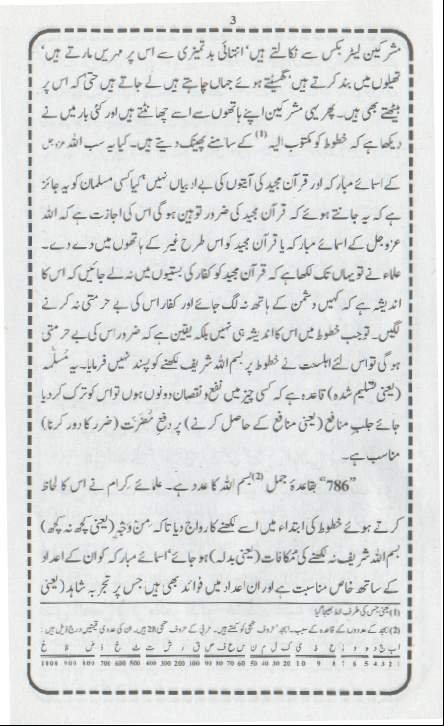 3
مشرکین لیٹر بکس سے نکالتے ہیں' انتہائی بدتمیزی سے اس پر مہریں مارتے ہیں'
تھیلوں میں بند کرتے ہیں' گھسیٹتے ہوئے جہاں چاہتے ہیں لے جاتے ہیں حتیٰ کہ اس پر
بیٹھتے بھی ہیں۔ پھر یہی مشرکین اپنے ہاتھوں سے اسے چھانٹتے ہیں اور کئی بار میں نے
دیکھا ہے کہ خطوط کو مکتوب الیہ (1) کے سامنے پھینک دیتے ہیں۔ کیا یہ سب اللہ عزوجل
کے اسمائے مبارکہ اور قرآن مجید کی آیتوں کی بے ادبیاں نہیں' کیا کسی مسلمان کو یہ جائز
ہے کہ یہ جانتے ہوئے کہ قرآن مجید کی ضرور توہین ہوگی اس کی اجازت ہے کہ اللہ
عزوجل کے اسمائے مبارکہ یا قرآن مجید کو اس طرح غیر کے ہاتھوں میں دے دے۔
علماء نے تو یہاں تک لکھا ہے کہ قرآن مجید کو کفار کی بستیوں میں نہ لے جائیں کہ اس کا
اندیشہ ہے کہ کہیں دشمن کے ہاتھ نہ لگ جائے اور کفار اس کی بے حرمتی نہ کرنے
لگیں۔ تو جب خطوط میں اس کا اندیشہ ہی نہیں بلکہ یقین ہے کہ ضرور اس کی بے حرمتی
ہوگی تو اس لئے اہلسنت نے خطوط پر بسم اللہ شریف لکھنے کو پسند نہیں فرمایا۔ یہ مُسلَّمہ
(یعنی تسلیم شدہ) قاعدہ ہے کہ کسی چیز میں نفع و نقصان دونوں ہوں تو اس کو ترک کر دیا
جائے جلبِ منافع (یعنی منافع کے حاصل کرنے) پر دفعِ مضرت (ضرر کا دور کرنا)
مناسب ہے۔
"786" بقاعدۂ جمل (2) بسم اللہ کا عدد ہے۔ علمائے کرام نے اس کا لحاظ
کرتے ہوئے خطوط کی ابتداء میں اسے لکھنے کا رواج دیا تاکہ مِنْ وَجْہٍ (یعنی کچھ نہ کچھ)
بسم اللہ شریف نہ لکھنے کی مکافات (یعنی بدلہ) ہو جائے' اسمائے مبارکہ کو ان کے اعداد
کے ساتھ خاص مناسبت ہے اور ان اعداد میں فوائد بھی ہیں جس پر تجربہ شاہد (یعنی
(1) یعنی جس کی طرف خط بھیجا گیا
(2) ابجد کے عددوں کے قاعدہ کے سبب۔ ابجد' حروف تہجی کو کہتے ہیں۔ عربی کے حروف تہجی 28 ہیں۔ ان کی عددی قیمتیں درج ذیل ہیں:
ا ب ج د ہ و ز ح ط ی ک ل م ن س ع ف ص ق ر ش ت ث خ ذ ض ظ غ
1 2 3 4 5 6 7 8 9 10 20 30 40 50 60 70 80 90 100 200 300 400 500 600 700 800 900 1000